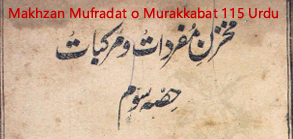 Makhzan Mufradat o Murakkabat 115 Urdu
مخزنِ مفردات و مرکبات
حصہ سوم